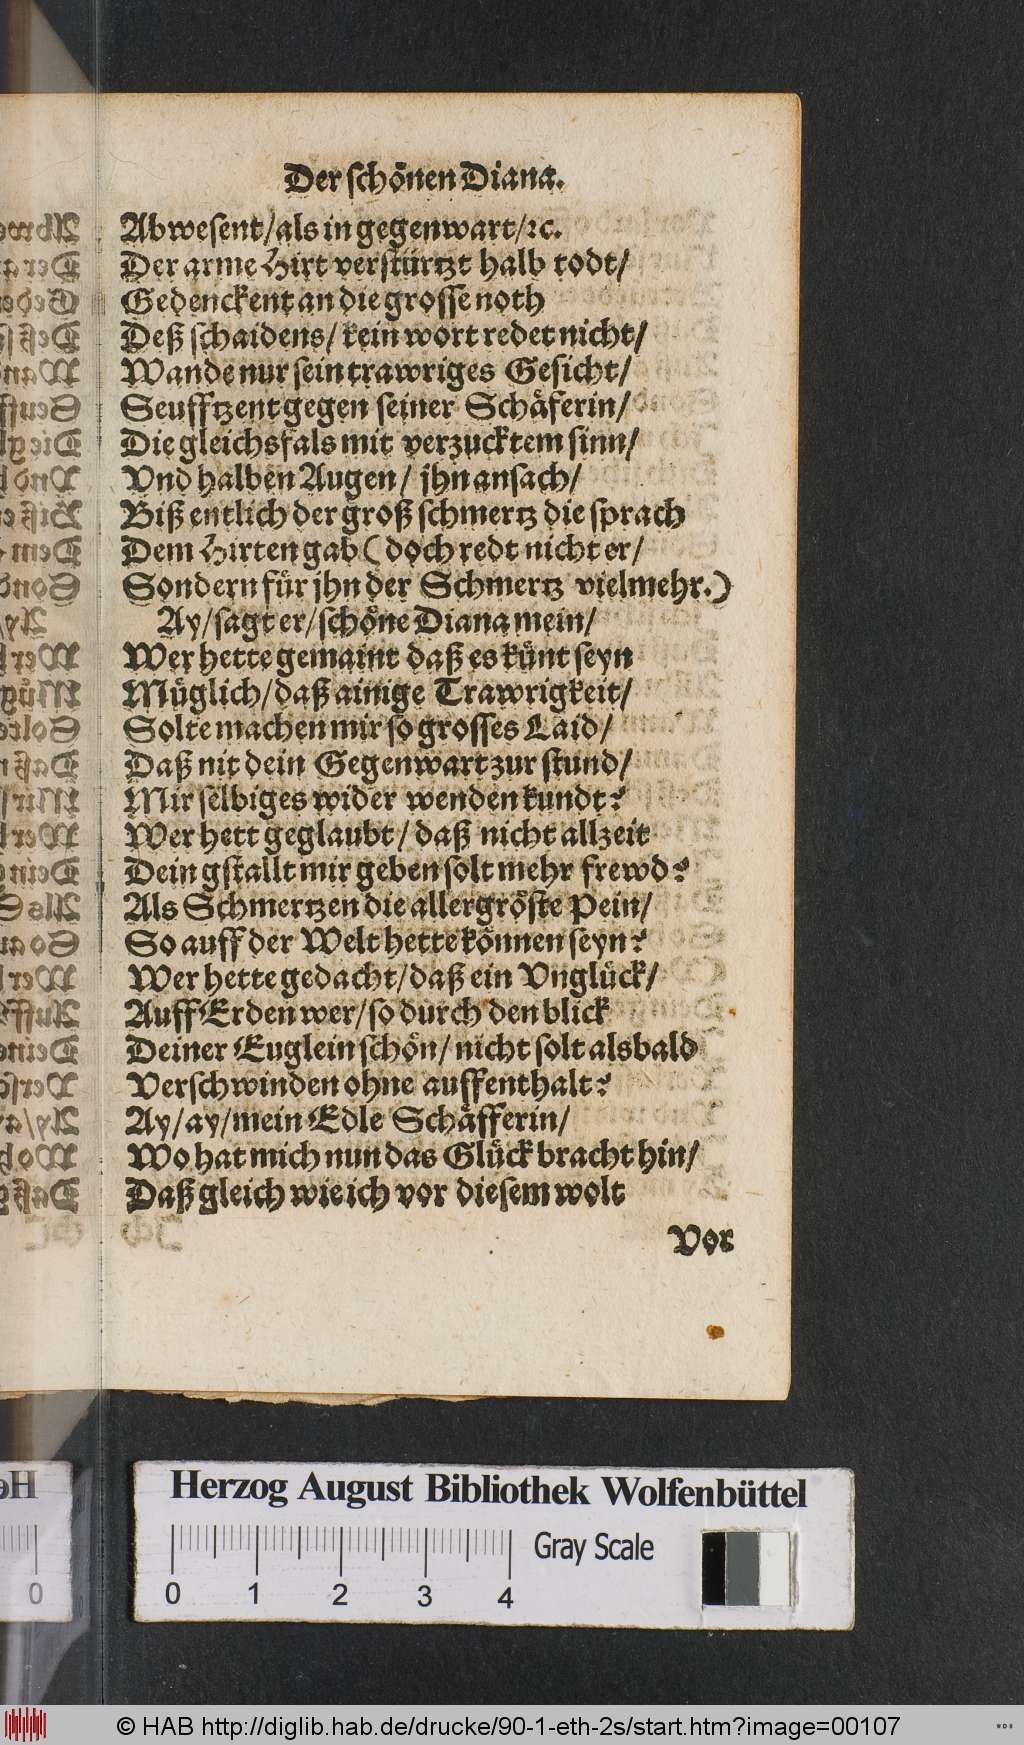 Der schönen Diana.
Abwesent/als in gegenwart/ꝛc.
Der arme Hirt verstürtzt halb todt/
Gedenckent an die grosse noth
Deß schaidens/ kein wort redet nicht/
Wande nur sein trawriges Gesicht/
Seufftzent gegen seiner Schäferin/
Die gleichsfals mit verzucktem sinn/
Vnd halben Augen/ jhn ansach/
Biß entlich der groß schmertz die sprach
Dem Hirten gab (doch redt nicht er/
Sondern für jhn der Schmertz vielmehr.)
Ay/sagt er/schöne Diana mein/
Wer hette gemaint daß es künt seyn
Müglich/daß ainige Trawrigkeit/
Solte machen mir so grosses Laid/
Daß nit dein Gegenwart zur stund/
Mir selbiges wider wenden kundt?
Wer hett geglaubt/ daß nicht allzeit
Dein gstallt mir geben solt mehr frewd?
Als Schmertzen die allergröste Pein/
So auff der Welt hette können seyn?
Wer hette gedacht/daß ein Vnglück/
Auff Erden wer/so durch den blick
Deiner Euglein schön/ nicht solt alsbald
Verschwinden ohne auffenthalt?
Ay/ay/mein Edle Schäfferin/
Wo hat mich nun das Glück bracht hin/
Daß gleich wie ich vor diesem wolt
Vor
Herzog August Bibliothek Wolfenbüttel
Gray Scale
0 1 2 3 4
© HAB http://diglib.hab.de/drucke/90-1-eth-2s/start.htm?image=00107